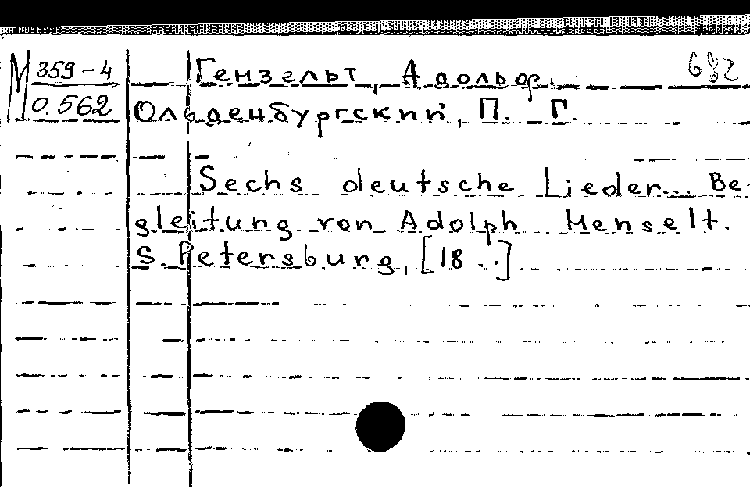 М 359-4 Гензельт, Адольф. 682
0.562 Ольденбургский, П. Г.
Sechs deutsche Lieder... Be-
gleitung von Adolph Henselt.
S. Petersburg, [18 ..]